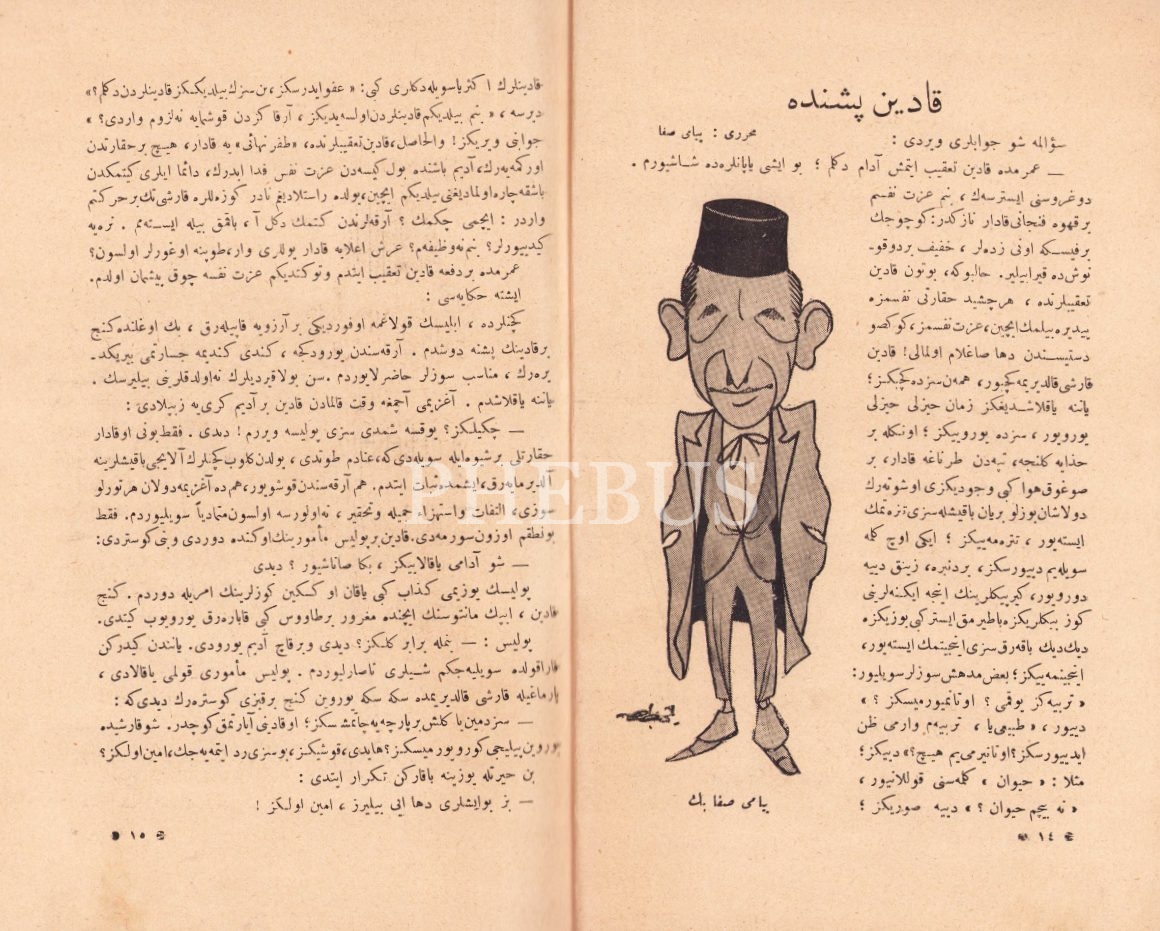 قادین پشنده
محرری : پیامی صفا
سؤالمه شو جوابلری ویردی :
— عمرمده قادین تعقیب ایتمش آدام دکلم ؛ بو ایشی یاپانلره‌ده شاشیورم .
دوغروسنی ایسترسه‌ك ، بنم عزت نفسم
بر قهوه فنجانی قادار نازكدر: كوچوجك
بر فیسكه اونی زده‌لر ، خفیف بر دوقو-
نوش ده قیرا بیلیر. حالبوكه، بوتون قادین
تعقیبلرنده ، هر چشید حقارتی نفسمزه
ییدیره بیلمك ایچین، عزت نفسمز، كوكصو
دستیسندن دها صاغلام اولمالی! قادین
قارشی قالدیریمه كچیور، همه‌ن سزده كچیكز؛
یاننه یاقلاشدیغكز زمان حیزلی حیزلی
یورویور، سزده یورویكز ؛ اونكله بر
حذایه كلنجه ، تپه‌دن طرناغه قادار، بر
صوغوق هوا كبی وجودیكزی اوشوته‌رك
دولاشان بوزلو بر یان باقیشله سزی تتره تمك
ایسته‌یور ، تتره مه‌ییكز ؛ ایكی اوچ كله
سویله‌یم دییورسكز، بردنبره، زینق دییه
دورویور، كیرپیكلرینك اینجه ایكنه‌لرینی
كوز ببكلریكزه باطیرمق ایستر كبی یوزیكزه
دیك دیك باقه‌رق سزی اینجیتمك ایسته‌یور،
اینجیتمه‌ییكز ؛ بعض مدهش سوزلر سویلیور:
« تربیه‌كز یوقمی ؟ اوتانمیورمیسكز ؟ »
دییور ، « طبیعی یا ، تربیه‌م وارمی ظن
ایدییورسكز؟ اوتانیرمی‌یم هیچ؟» دییكز؛
مثلا : « حیوان ، كله‌سنی قوللانیور ،
« نه بیچم حیوان ؟ » دییه صوریكز ؛
پیامی صفا بك
١٤
قادینلرك اكثریا سویله‌دكلری كبی: « عفو ایدرسكز، بن سزك بیلدیكسكز قادینلردن دكلم؟»
دیرسه ، « بنم بیلدیكم قادینلردن اولسه‌یدیكز، آرقا كزدن قوشمایه نه لزوم واردی؟ »
جوابنی ویریكز! والحاصل، قادین تعقیبلرنده، «ظفر نهائی» یه قادار، هیچ بر حقارتدن
اوركمه‌یه‌رك، آدیم باشنده بول كیسه‌دن عزت نفس فدا ایدرك، دائما ایلری كیتمكدن
باشقه چاره اولمادیغنی بیلدیكم ایچین، یولده راستلادیغم نادر كوزه‌للره قارشی تك بر حركتم
واردر : ایچمی چكمك ؟ آرقه‌لرندن كتمك دكل آ ، باقمق بیله ایسته‌مم . نره‌یه
كیدییورلر؟ بنم نه وظیفه‌م؟ عرش اعلایه قادار یوللری وار، طوپنه اوغورلر اولسون؟
عمرمده بر دفعه قادین تعقیب ایتدم و توكندیكم عزت نفسه چوق پیشمان اولدم.
ایشته حكایه‌سی :
كچنلرده ، ابلیسك قولاغمه اوفوردیكی بر آرزویه قاپیله‌رق ، بك اوغلنده كنج
بر قادینك پشنه دوشدم . آرقه‌سندن یورودكجه ، كندی كندیمه جسارتمی بیریكد-
یره‌رك ، مناسب سوزلر حاضرلایوردم. سن بولاقیردیلرك نه اولدقلرینی بیلیرسك .
یاننه یاقلاشدم . آغزیمی آچمغه وقت قالمادن قادین بر آدیم كری‌یه زیپلادی :
— چكیلكز؟ یوقسه شمدی سزی پولیسه ویررم ! دیدی . فقط بونی اوقادار
حقارتلی بر شیوه ایله سویله‌دی‌كه، عنادم طوتدی ، یولدن كلوب كچنلرك آلایجی باقیشلرینه
آلدیرمایه‌رق، ایشمده ثبات ایتدم. هم آرقه‌سندن قوشویور، هم ده آغزیمه دولان هر تورلو
سوزی، التفات و استهزا، جمیله و تحقیر ، نه اولورسه اولسون متمادیاً سویلیوردم. فقط
بو نطقم اوزون سورمه‌دی. قادین بر پولیس مأمورینك اوكنده دوردی و بنی كوستردی:
— شو آدامی یاقالاییكز ، بكا صاتاشیور ؟ دیدی
پولیسك یوزیمی كذاب كبی یاقان او كسكین كوزلرینك امریله دوردم . كنج
قادین ، ایپك مانتوسنك ایچنده مغرور بر طاووس كبی قاباره‌رق یورویوب كیتدی.
پولیس : — بنمله برابر كلكز؟ دیدی و بر قاچ آدیم یورودی. یانندن كیدركن
قاراقولده سویلیه‌جكم شیلری تاصارلیوردم . پولیس مأموری قولمی یاقالادی ،
پارماغیله قارشی قالدیریمده سكه سكه یورویین كنج بر قیزی كوستره‌رك دیدی‌كه :
— سز دمین یا كلش پارچه‌یه چاتمشسكز؛ او قادنی آیارتمق كوجدر. شو قارشیده
یورویین پیلیجی كورویورمیسكز؟ هایدی، قوشیكز، بو سزی رد ایتمه‌یه‌جك، امین اولكز؟
بن حیرتله یوزینه باقاركن تكرار ایتدی :
— بز بوایشلری دها ایی بیلیرز ، امین اولكز !
١٥
PHEBUS